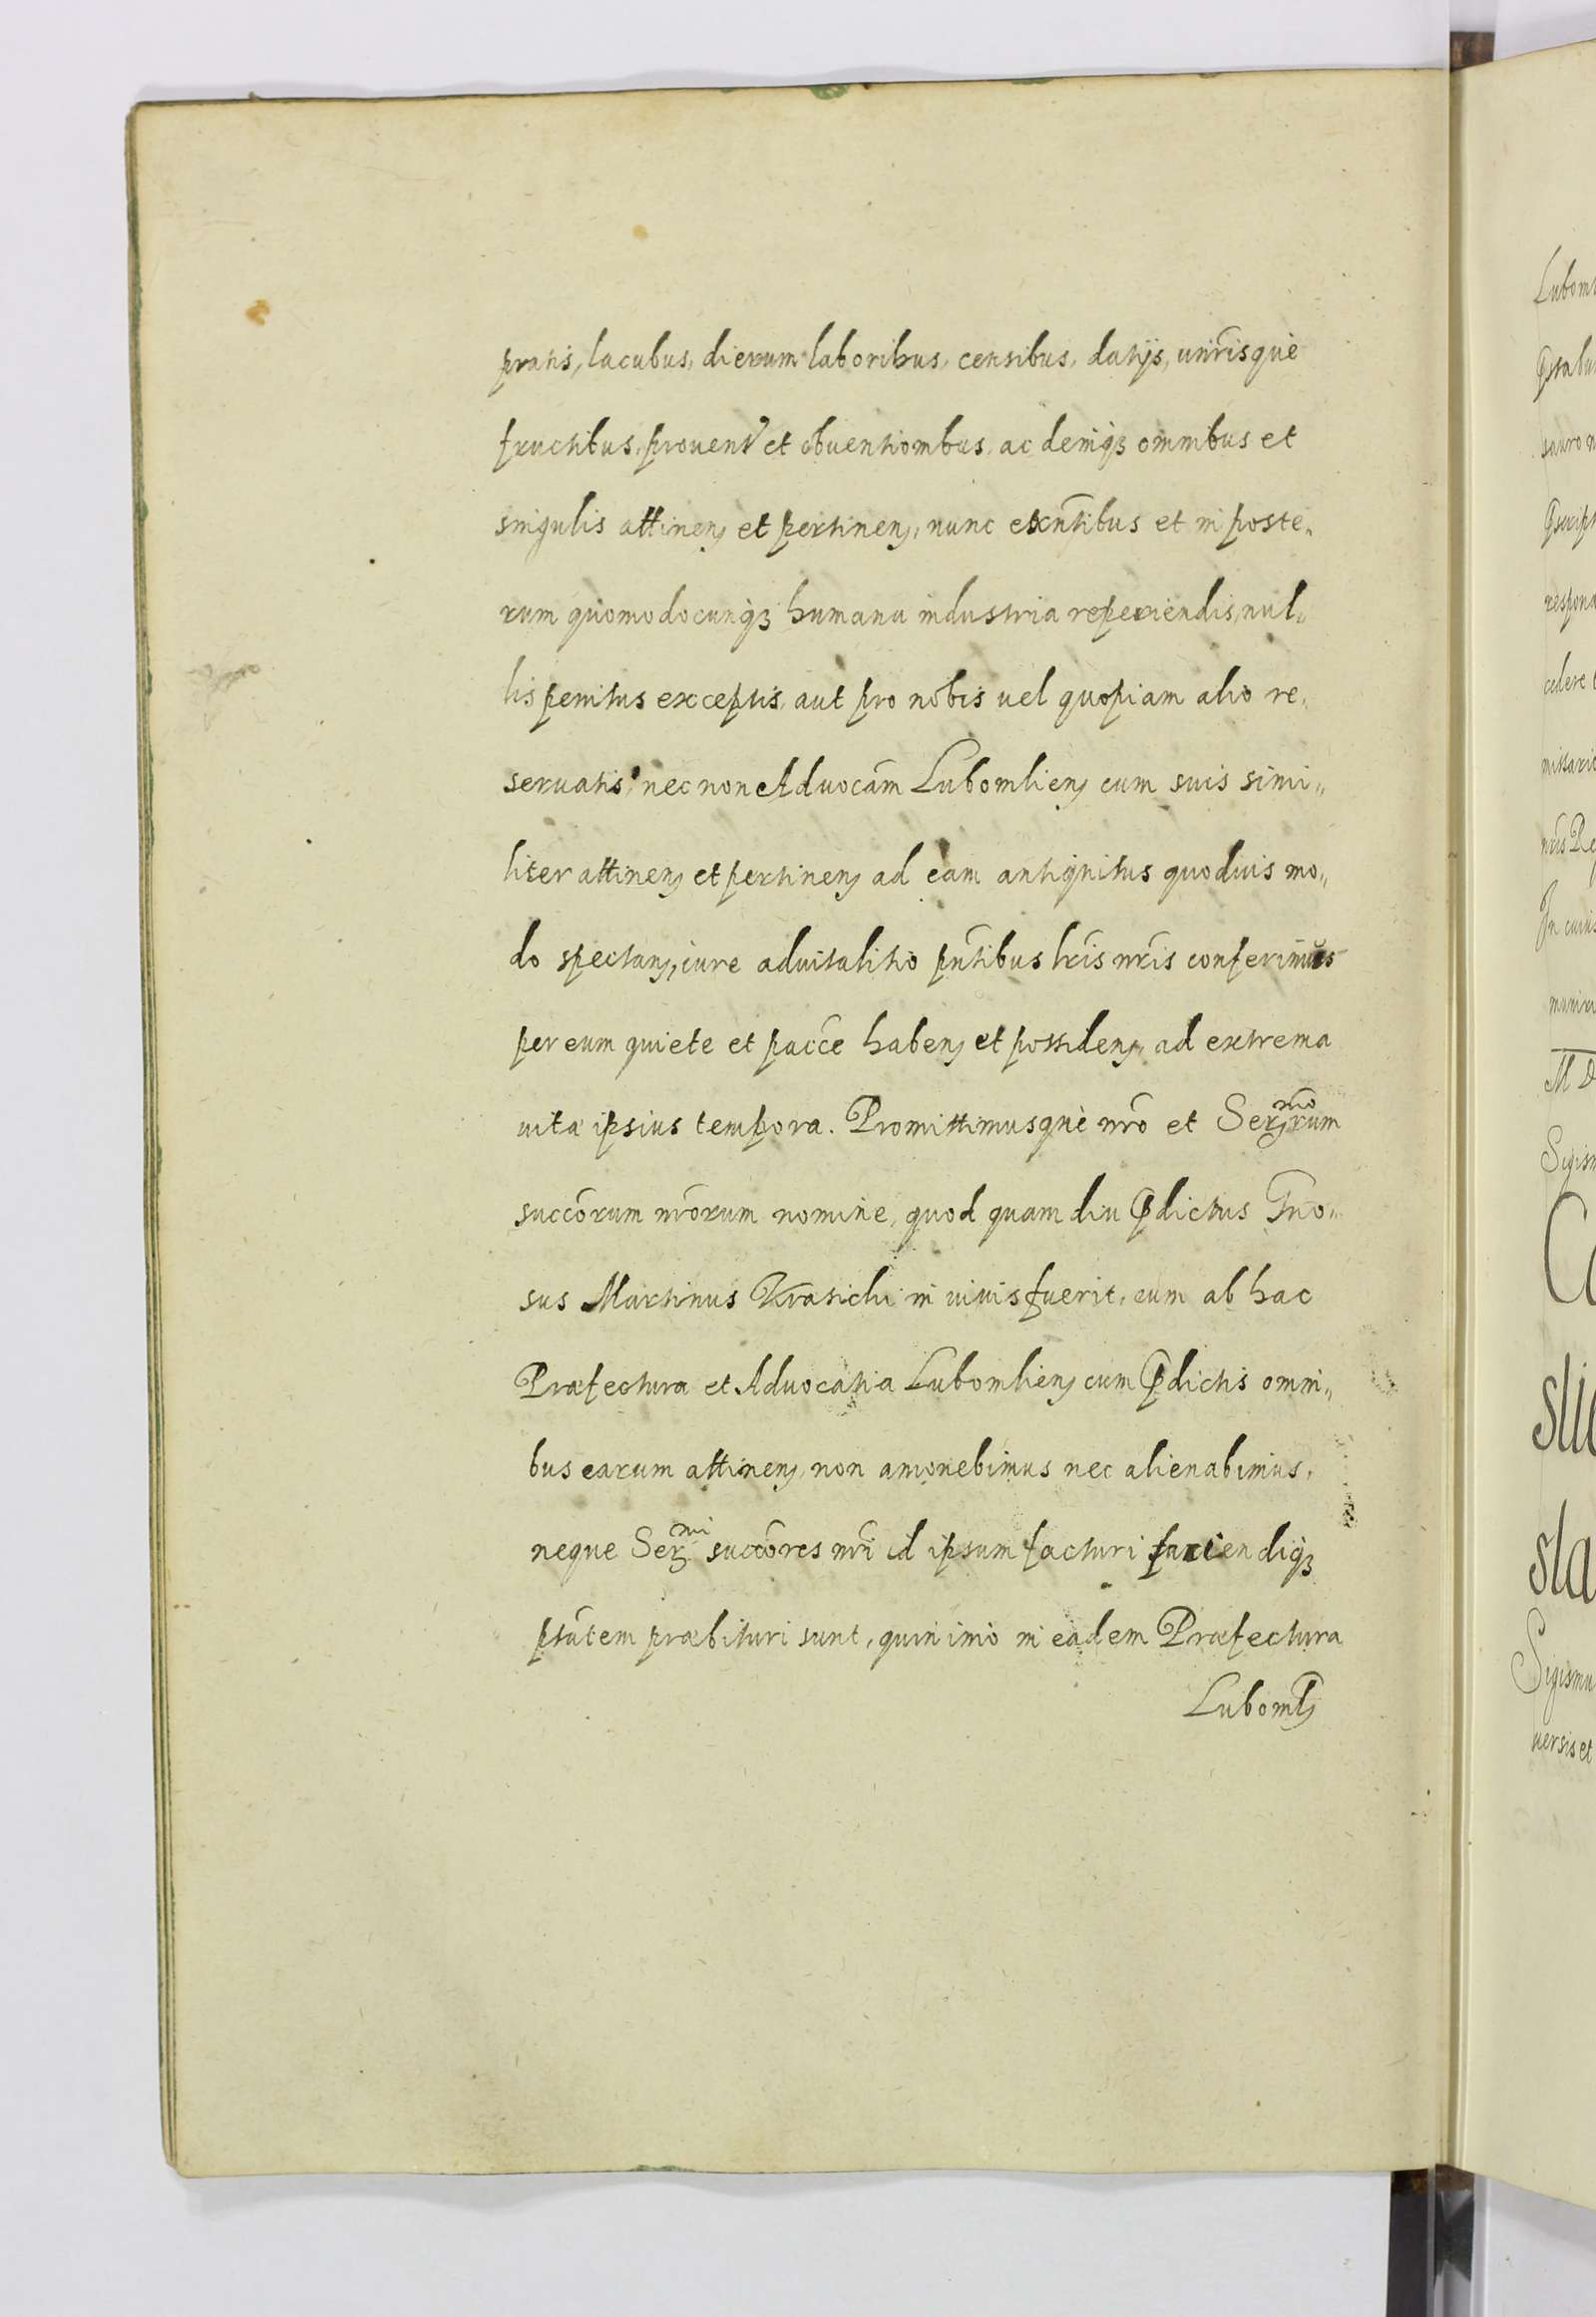 pratis, lacubus, dierum laboribus, censibus, datijs, unīrisquè
fructibus, prouent et obuentionibus, ac deniqȝ omnibus et
singulis attinenȝ et pertinenȝ, nunc exn̄tibus et in poste„
rum quomodocunqȝ humana industria reperiendis, nul„
lis penitus exceptis, aut pro nobis uel quopiam alio re„
seruatis, nec non Aduocām Lubomlienȝ cum suis simi„
liter attinenȝ et pertinenȝ ad eam antiquitus quoduis mo„
do spectanȝ, iure aduitalitio pn̄tibus lr̄is nr̄is conferimus
per eum quiete et pacc̄e habenȝ et possidenȝ, ad extrema
uitæ ipsius tempora. Promittimusquè nr̄o et Serᵐᵒrum
succ̄orum nr̄orum nomine, quod quam diu p̄dictus Gn̄o„
sus Martinus Krasicki in uiuis fuerit, eum ab hac
Præfectura et Aduocatia Lubomlienȝ cum p̄dictis omni„
bus earum attinenȝ, non amouebimus nec alienabimus,
neque Serᵐⁱ succ̄ores nr̄i id ipsum facturi faciendiqȝ
ptātem præbituri sunt, quin imò in eadem Præfectura
Lubomlȝ
Lubom
p̄stabu
sauro n
p̄script
respond
cedere
missario
nr̄is Re
In cuius
muniri
M D
Sigism
Ca
slic
sla
Sigismu
uersis et